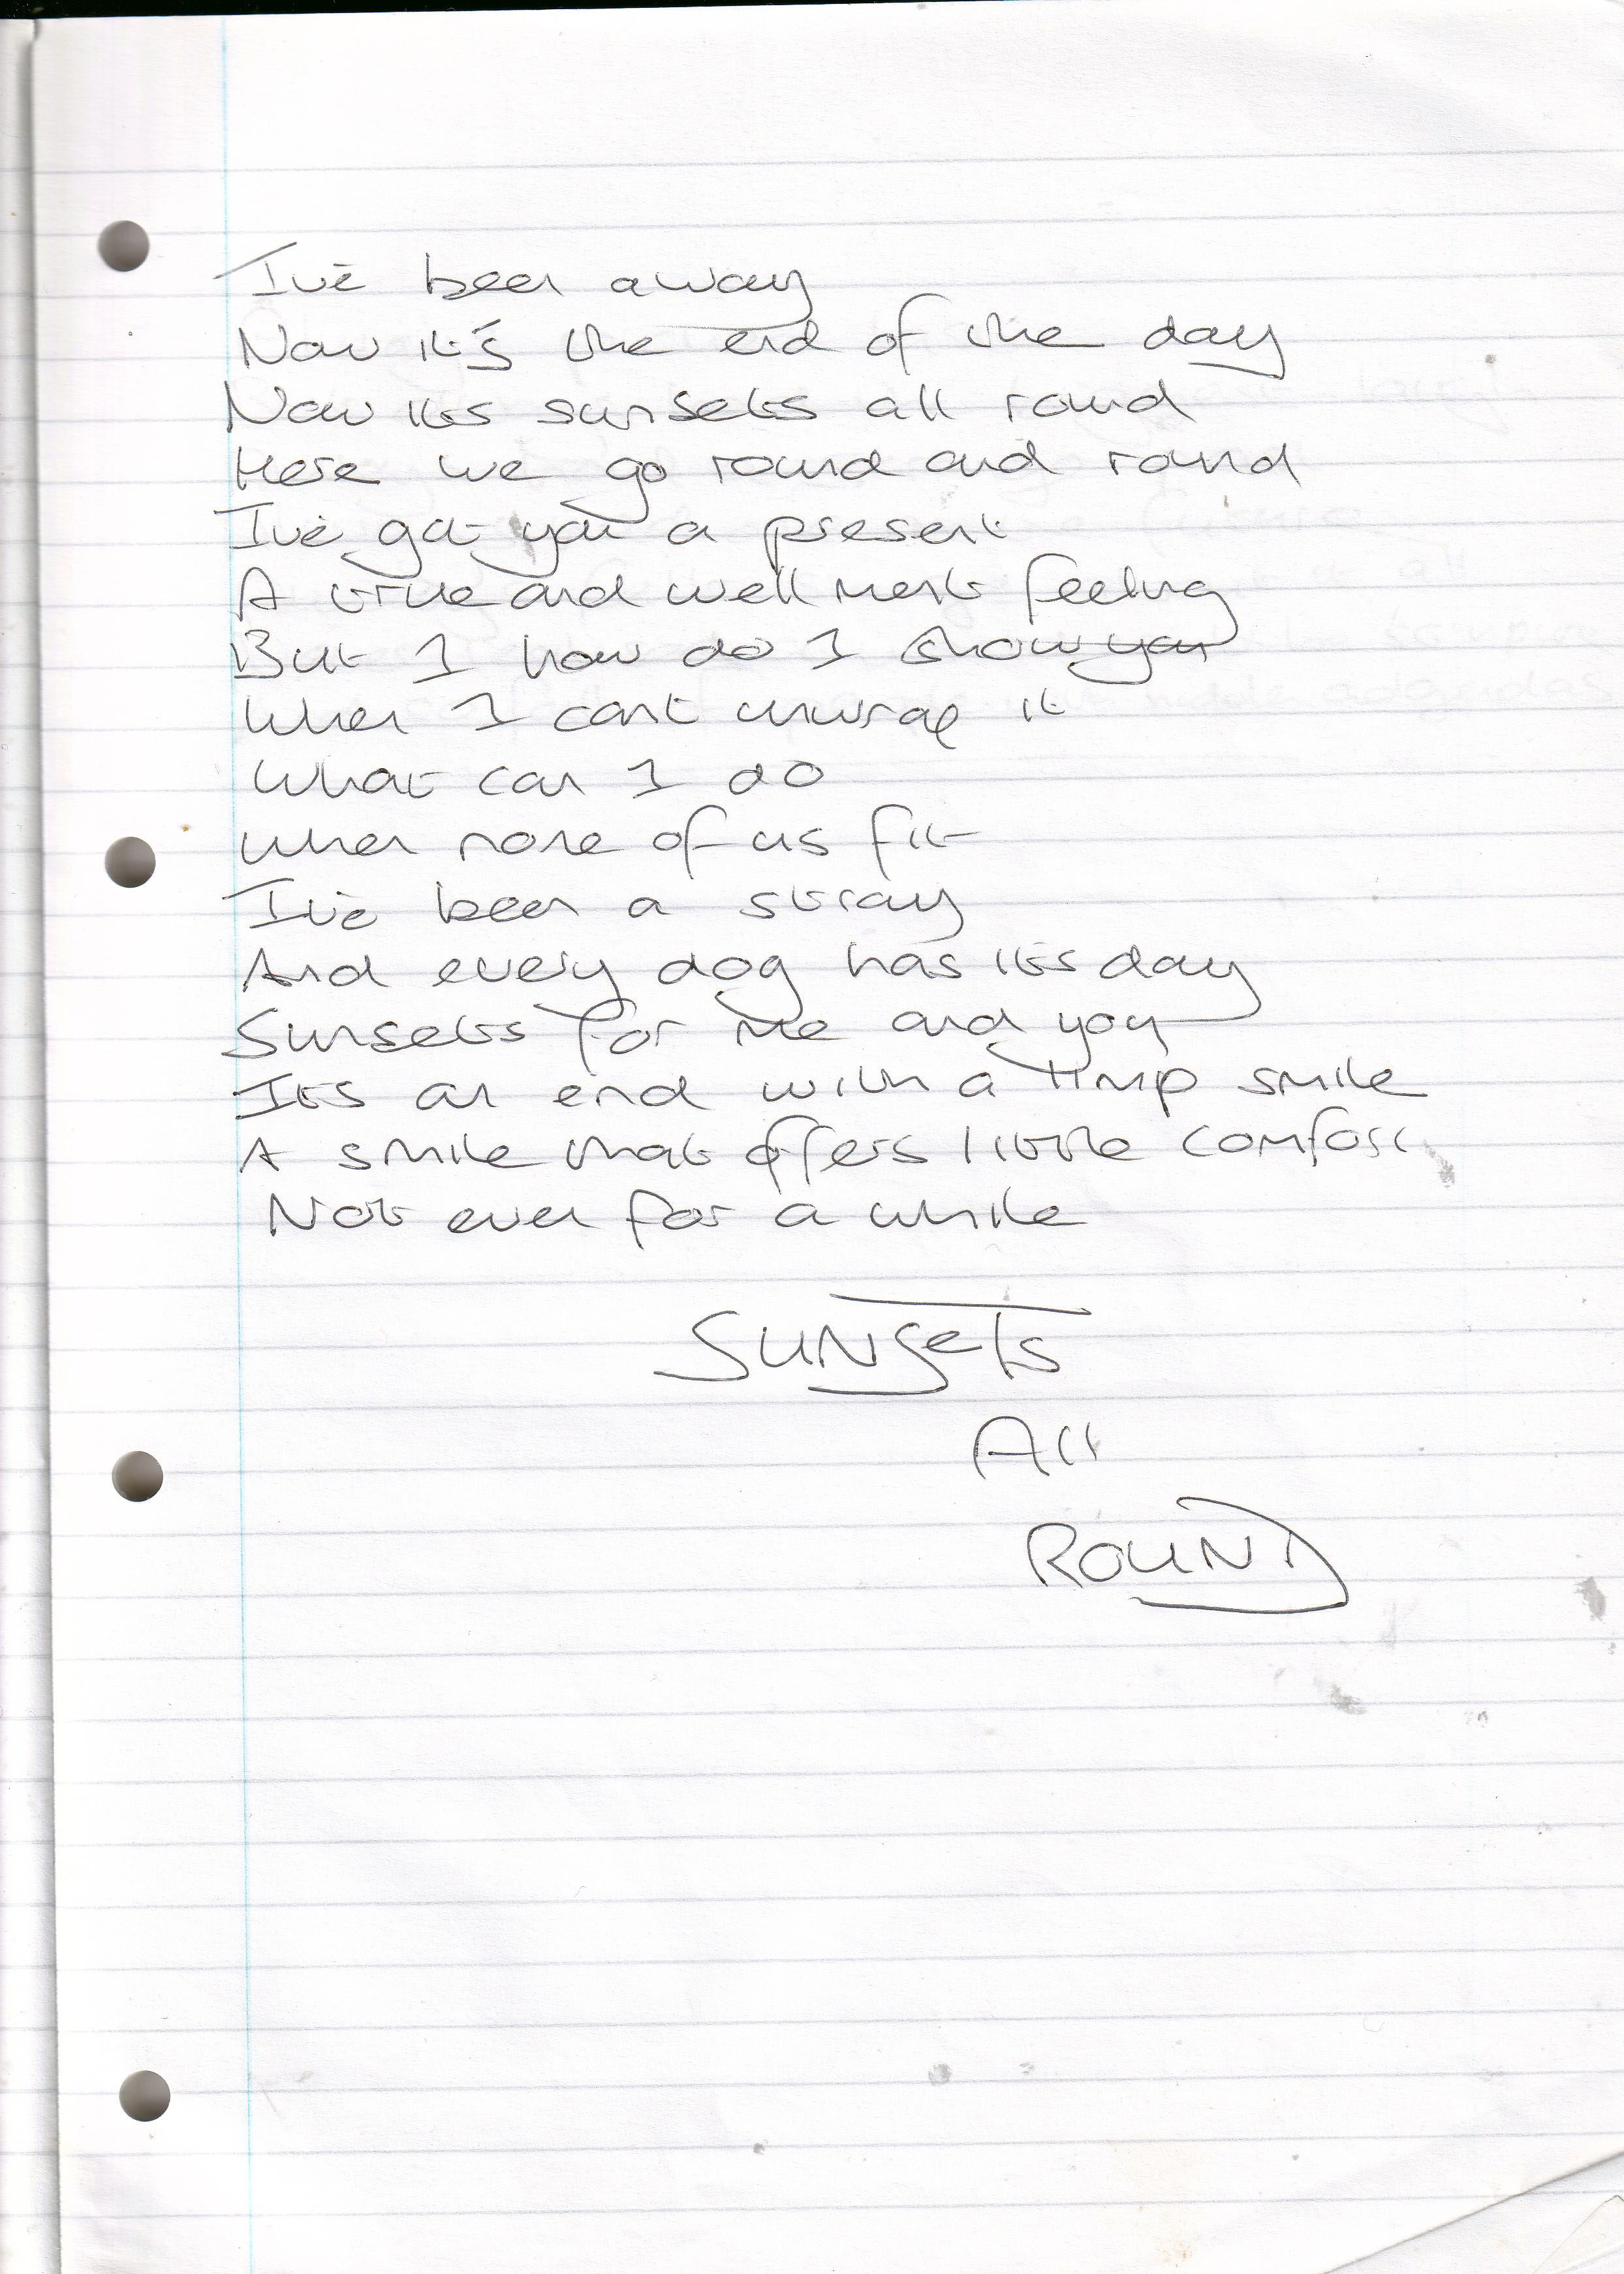 I've been away
Now it's the end of the day
Now its sunsets all round
Here we go round and round
I've got you a present
A true and well ment feeling
But I how do I show you
When I cant unwrap it
What can I do
When none of us fit
I've been a stray
And every dog has its day
Sunsets for me and you
Its an end with a limp smile
A smile that offers little comfort
Not even for a while
SUNSETS
All
ROUND